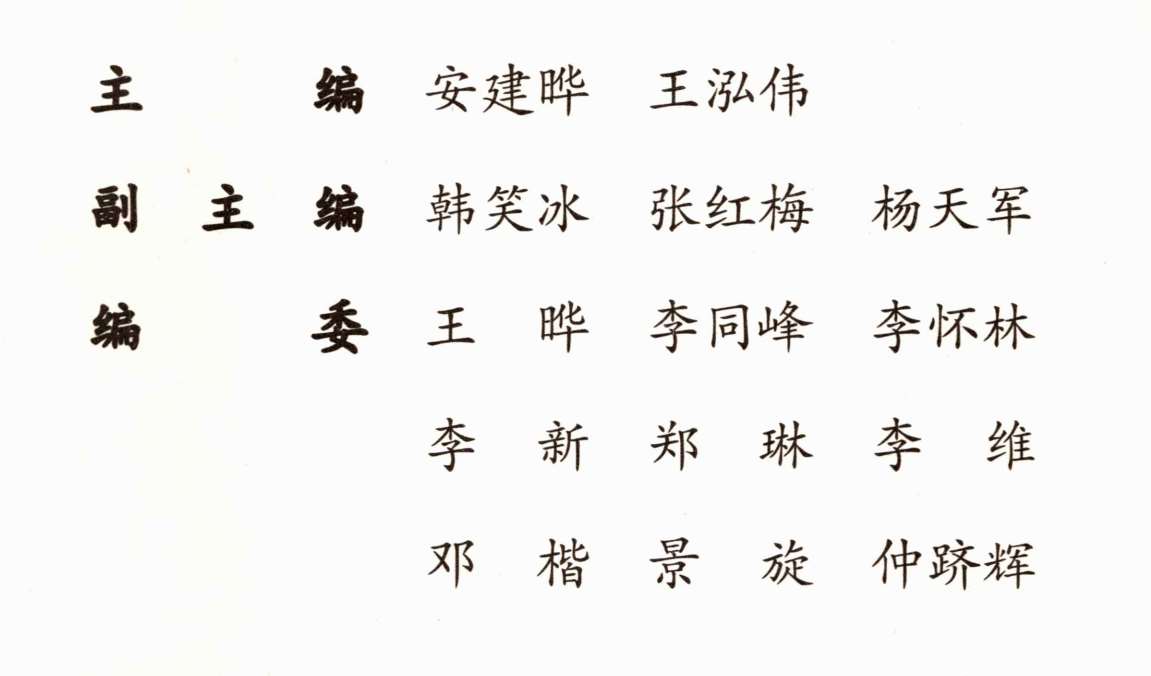 主 编 安建晔 王泓伟
副 主 编 韩笑冰 张红梅 杨天军
编 委 王 晔 李同峰 李怀林
李 新 郑 琳 李 维
邓 楷 景 旋 仲跻辉